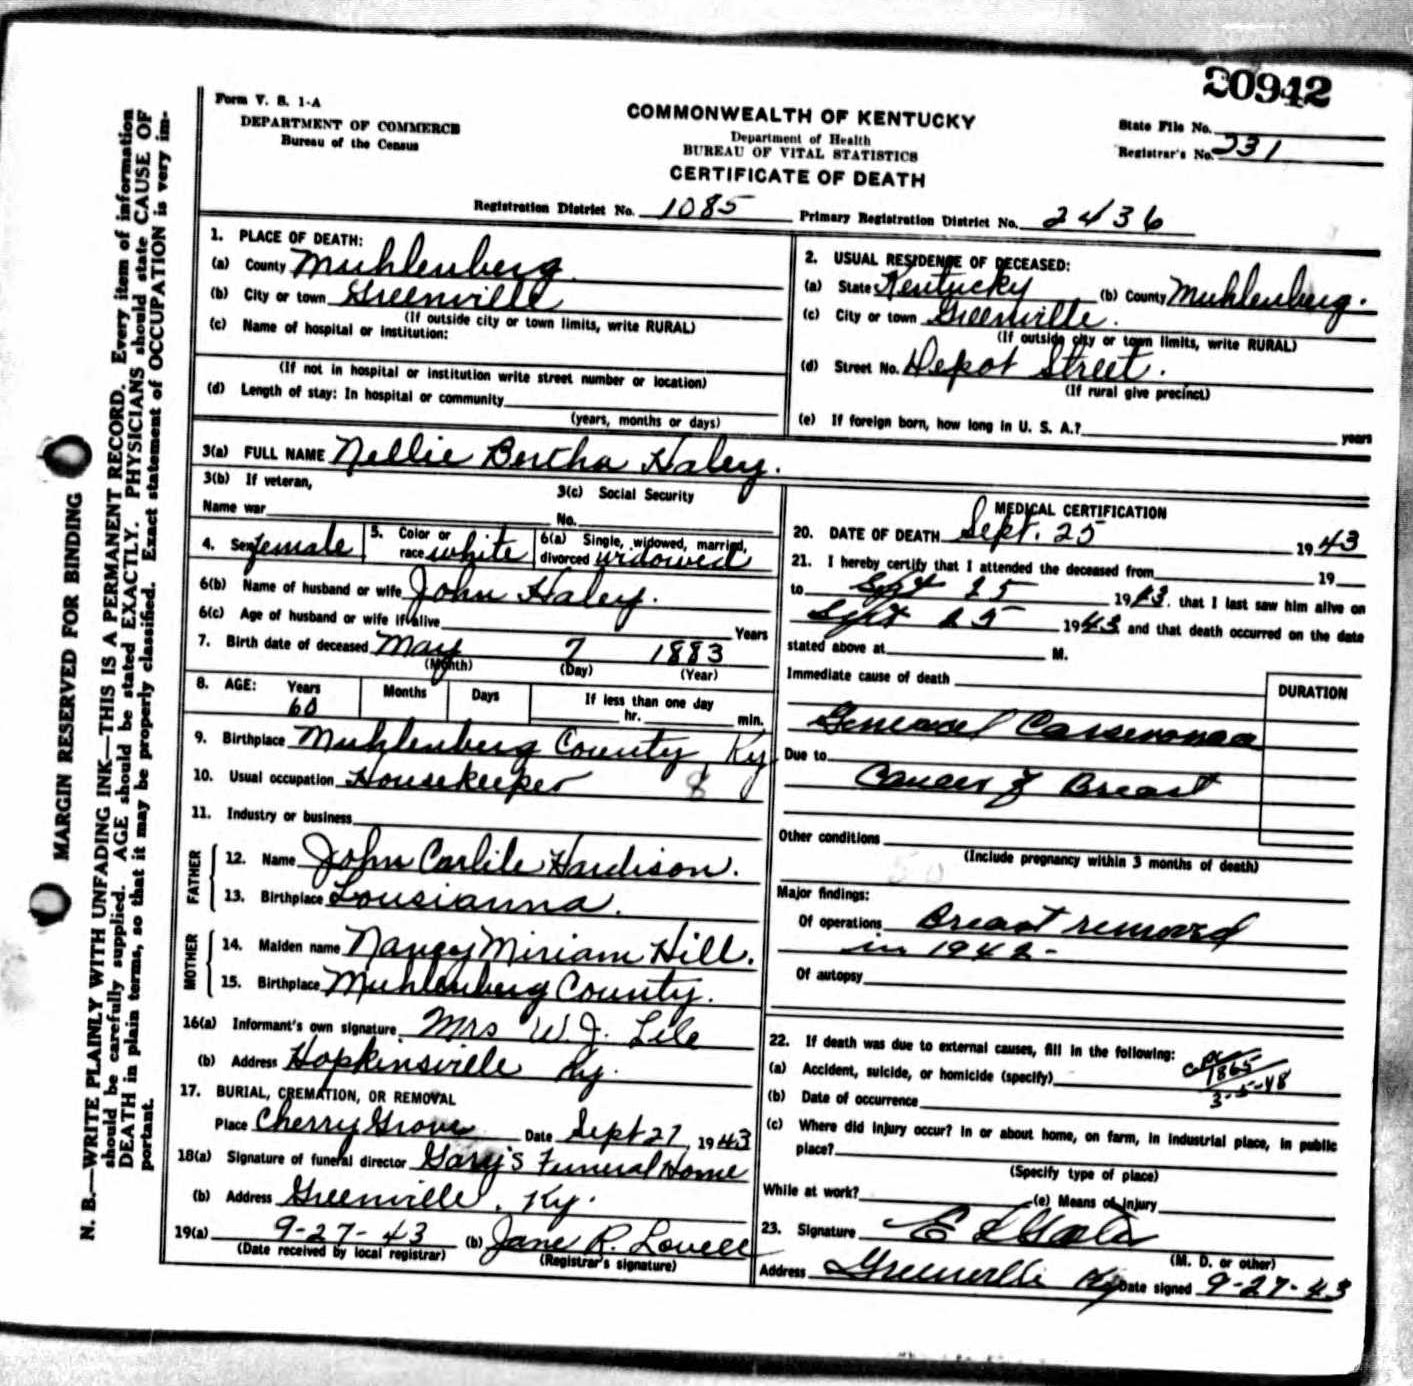 20942
Form V. S. 1-A
DEPARTMENT OF COMMERCE
Bureau of the Census
COMMONWEALTH OF KENTUCKY
Department of Health
BUREAU OF VITAL STATISTICS
CERTIFICATE OF DEATH
State File No.
Registrar's No. 231
Registration District No. 1085 Primary Registration District No. 2436
1. PLACE OF DEATH:
(a) County Muhlenberg
(b) City or town Greenville
(If outside city or town limits, write RURAL)
(c) Name of hospital or institution:
(If not in hospital or institution write street number or location)
(d) Length of stay: In hospital or community
(years, months or days)
2. USUAL RESIDENCE OF DECEASED:
(a) State Kentucky (b) County Muhlenberg.
(c) City or town Greenville.
(If outside city or town limits, write RURAL)
(d) Street No. Depot Street.
(If rural give precinct)
(e) If foreign born, how long in U. S. A.? years
3(a) FULL NAME Nellie Bertha Haley.
3(b) If veteran,
Name war
3(c) Social Security
No.
4. Sex female 5. Color or race white 6(a) Single, widowed, married, divorced widowed
6(b) Name of husband or wife John Haley.
6(c) Age of husband or wife if alive Years
7. Birth date of deceased May 7 1883
(Month) (Day) (Year)
8. AGE: Years 60 Months Days If less than one day
hr. min.
9. Birthplace Muhlenberg County, Ky
10. Usual occupation Housekeeper 8
11. Industry or business
FATHER
12. Name John Carlile Hardison.
13. Birthplace Lousianna.
MOTHER
14. Maiden name Nancy Miriam Hill.
15. Birthplace Muhlenberg County.
16(a) Informant's own signature Mrs W. J. Lile
(b) Address Hopkinsville Ky.
17. BURIAL, CREMATION, OR REMOVAL
Place Cherry Grove Date Sept 27, 1943
18(a) Signature of funeral director Gary's Funeral Home
(b) Address Greenville, Ky.
19(a) 9-27-43 (b) Jane R. Lovell
(Date received by local registrar) (Registrar's signature)
MEDICAL CERTIFICATION
20. DATE OF DEATH Sept. 25 1943
21. I hereby certify that I attended the deceased from 19
to Sept 25 1943. that I last saw him alive on
Sept 25 1943 and that death occurred on the date
stated above at M.
Immediate cause of death
DURATION
General
Due to
Cancer of Breast
Other conditions
(Include pregnancy within 3 months of death)
50
Major findings:
Of operations Breast removed
in 1942-
Of autopsy
22. If death was due to external causes, fill in the following:
(a) Accident, suicide, or homicide (specify)
1865
3-5-48
(b) Date of occurrence
(c) Where did injury occur? In or about home, on farm, in industrial place, in public
place?
(Specify type of place)
While at work? (e) Means of injury
23. Signature E
(M. D. or other)
Address Greenville Ky Date signed 9-27-43
MARGIN RESERVED FOR BINDING
N. B.—WRITE PLAINLY WITH UNFADING INK—THIS IS A PERMANENT RECORD. Every item of information
should be carefully supplied. AGE should be stated EXACTLY. PHYSICIANS should state CAUSE OF
DEATH in plain terms, so that it may be properly classified. Exact statement of OCCUPATION is very im-
portant.